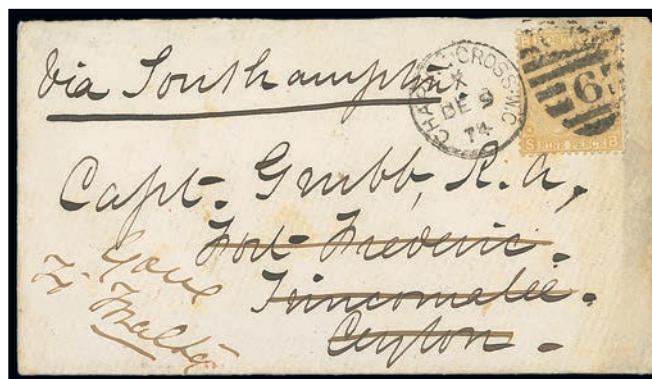 Via Southampton
CHARING CROSS·W.C
X
DE 9
74
6
S NINE PENCE B
Capt. Grubb, R.A.,
Fort Frederic.
Trincomalee.
Ceylon.
Gone
To Malta